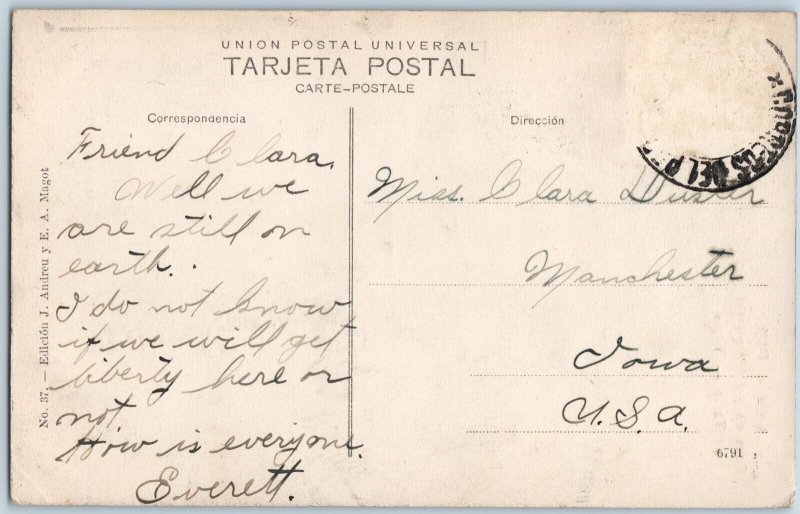 UNION POSTAL UNIVERSAL
TARJETA POSTAL
CARTE-POSTALE
Correspondencia
Dirección
Friend Clara,
Well we
are still on
earth.
I do not know
if we will get
liberty here or
not.
How is everyone.
Everett.
Miss. Clara Duster
Manchester
Iowa
U.S.A.
6791
No. 37. — Edición J. Andreu y E. A. Magot